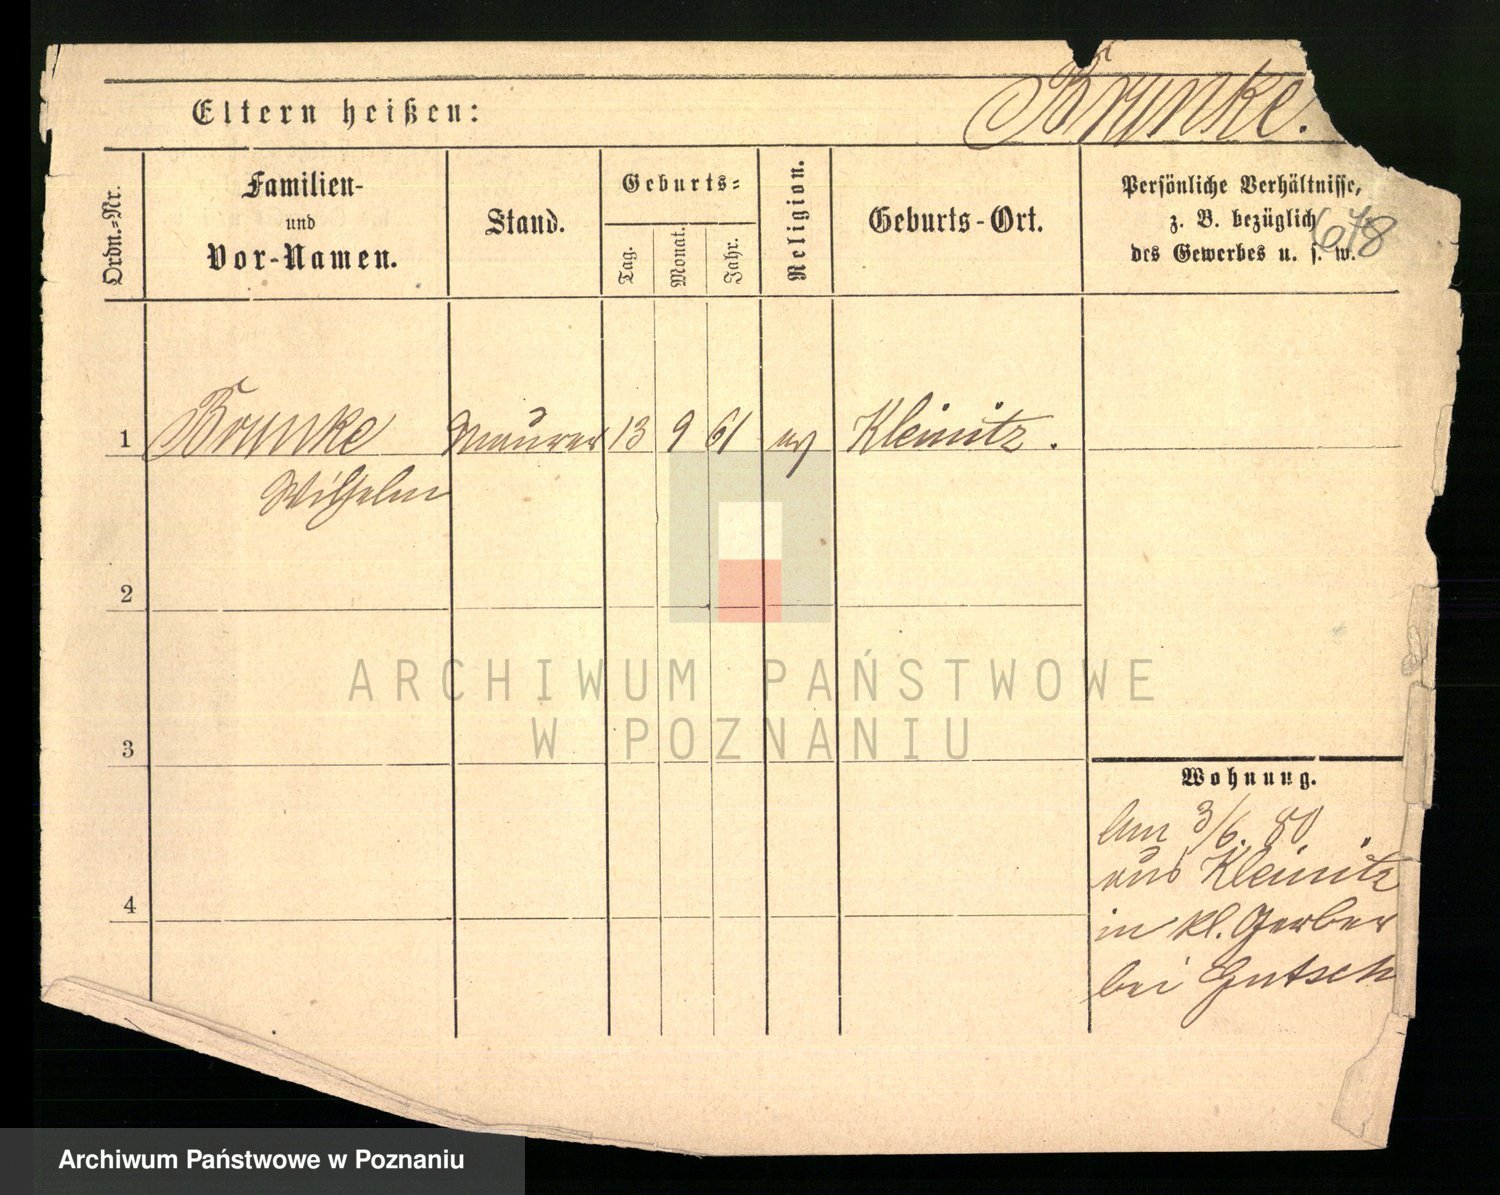 Brunke.
Eltern heißen:
Ordn.=Nr.
Familien-
und
Vor-Namen.
Stand.
Geburts=
Tag.
Monat.
Jahr.
Religion.
Geburts-Ort.
Persönliche Verhältnisse,
z. B. bezüglich
des Gewerbes u. s. w.
678
1 Brunke Maurer 13 9 61 ev Kleinitz.
Wilhelm
2
3
4
Wohnung.
Am 3/6. 80
aus Kleinitz
in kl. Gerber
bei Gutsch
ARCHIWUM PAŃSTWOWE
W POZNANIU
Archiwum Państwowe w Poznaniu